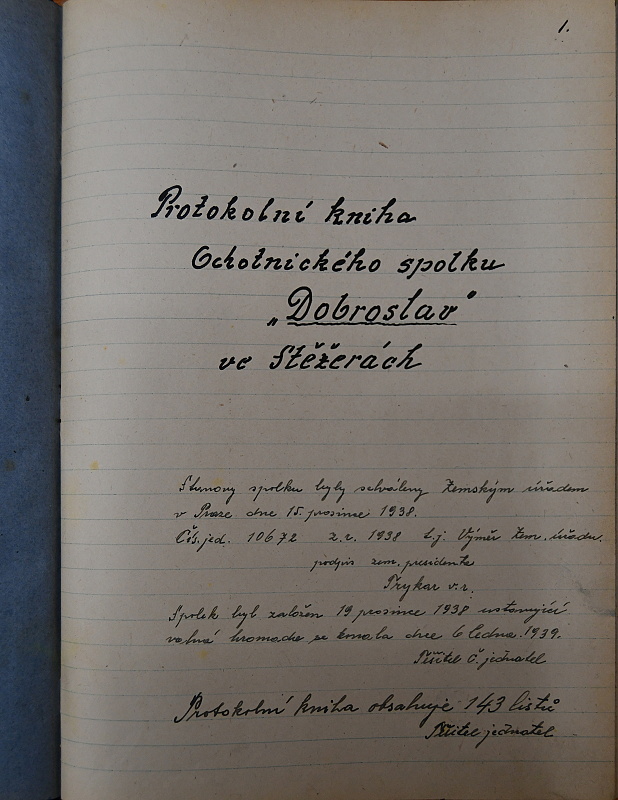 1.
Protokolní kniha
Ochotnického spolku
„Dobroslav"
ve Stěžerách
Stanovy spolku byly schváleny Zemským úřadem
v Praze dne 15. prosince 1938.
Čís. jed. 10672 z. r. 1938 t. j. Výměr Zem. úřadu.
podpis zem. presidenta
v. r.
Spolek byl založen 19 prosince 1938 ustavující
valná hromada se konala dne 6 ledna. 1939.
jednatel
Protokolní kniha obsahuje 143 listů
jednatel